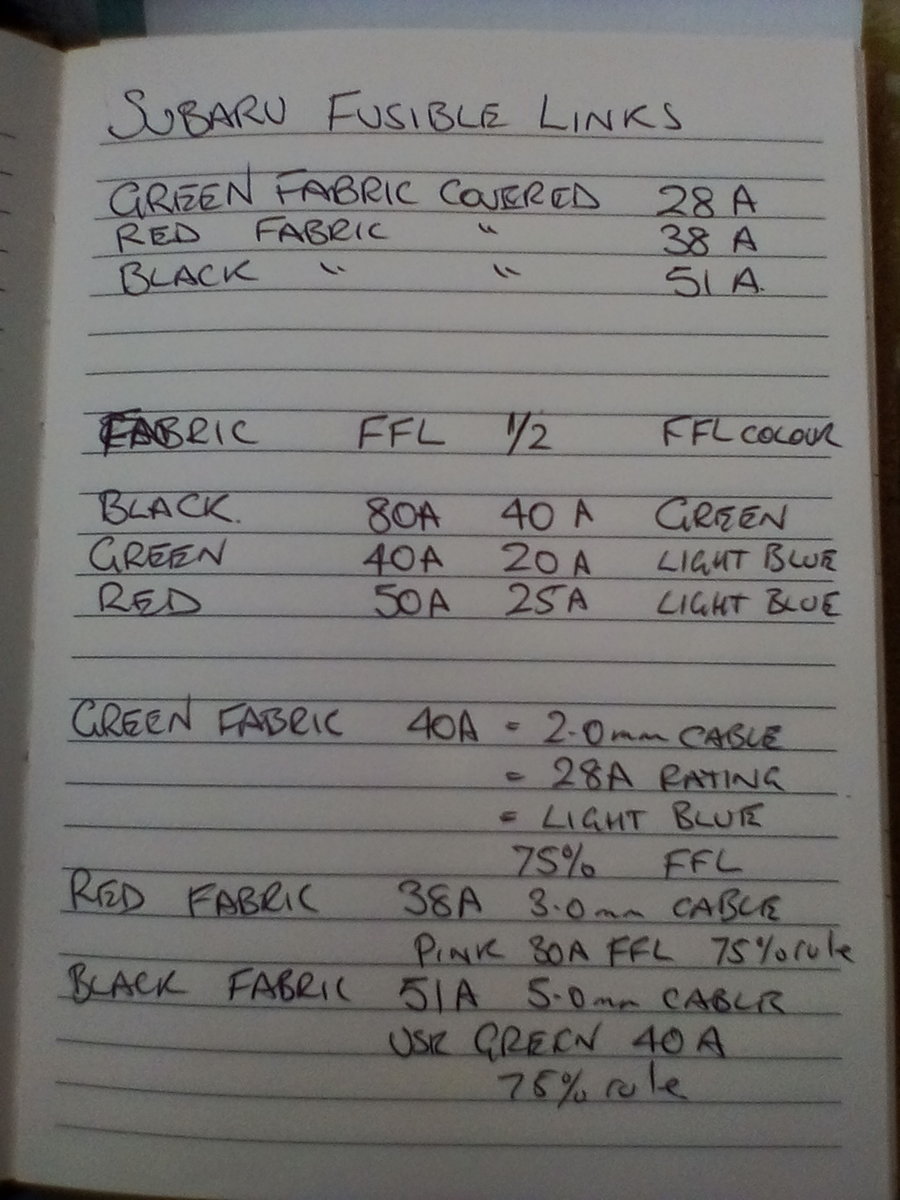 SUBARU FUSIBLE LINKS
GREEN FABRIC COVERED 28 A
RED FABRIC " 38 A
BLACK " " 51 A.
FABRIC FFL 1/2 FFL COLOUR
BLACK. 80A 40 A GREEN
GREEN 40A 20A LIGHT BLUE
RED 50A 25A LIGHT BLUE
GREEN FABRIC 40A = 2.0mm CABLE
= 28A RATING
= LIGHT BLUE
75% FFL
RED FABRIC 38A 3.0mm CABLE
PINK 30A FFL 75% rule
BLACK FABRIC 51A 5.0mm CABLE
USE GREEN 40 A
75% rule